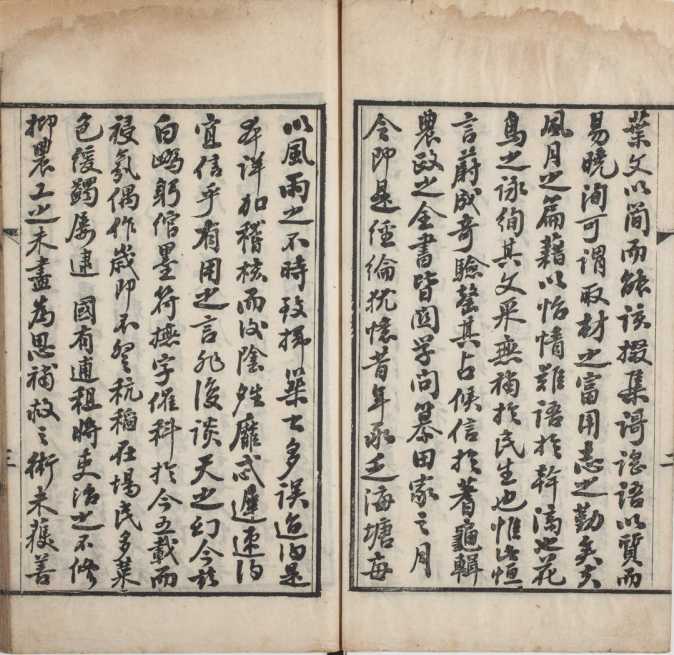 葉文以簡而能該掇集謌謠語以質而
易曉洵可謂取材之富用志之勤矣夫
風月之篇藉以怡情難語於幹濟也花
鳥之詠絢其文采無補於民生也惟此恒
言蔚成奇驗其占候信於蓍龜輯
農政之全書皆圖學問纂田家之月
令即是經綸憶昔年承乏海塘每
以風雨之不時致捍築之多誤迨得是
本詳加稽核而後陰晴靡忒遲速得
宜信乎有用之言非復談天之幻今玆
白躬綰墨符撫字催科於今五載而
祲氛偶作歲即不登秔稻在場民多菜
色緩蠲屢逮 國有逋租將吏治之不修
抑農工之未盡為思補救之術未獲善
二
三